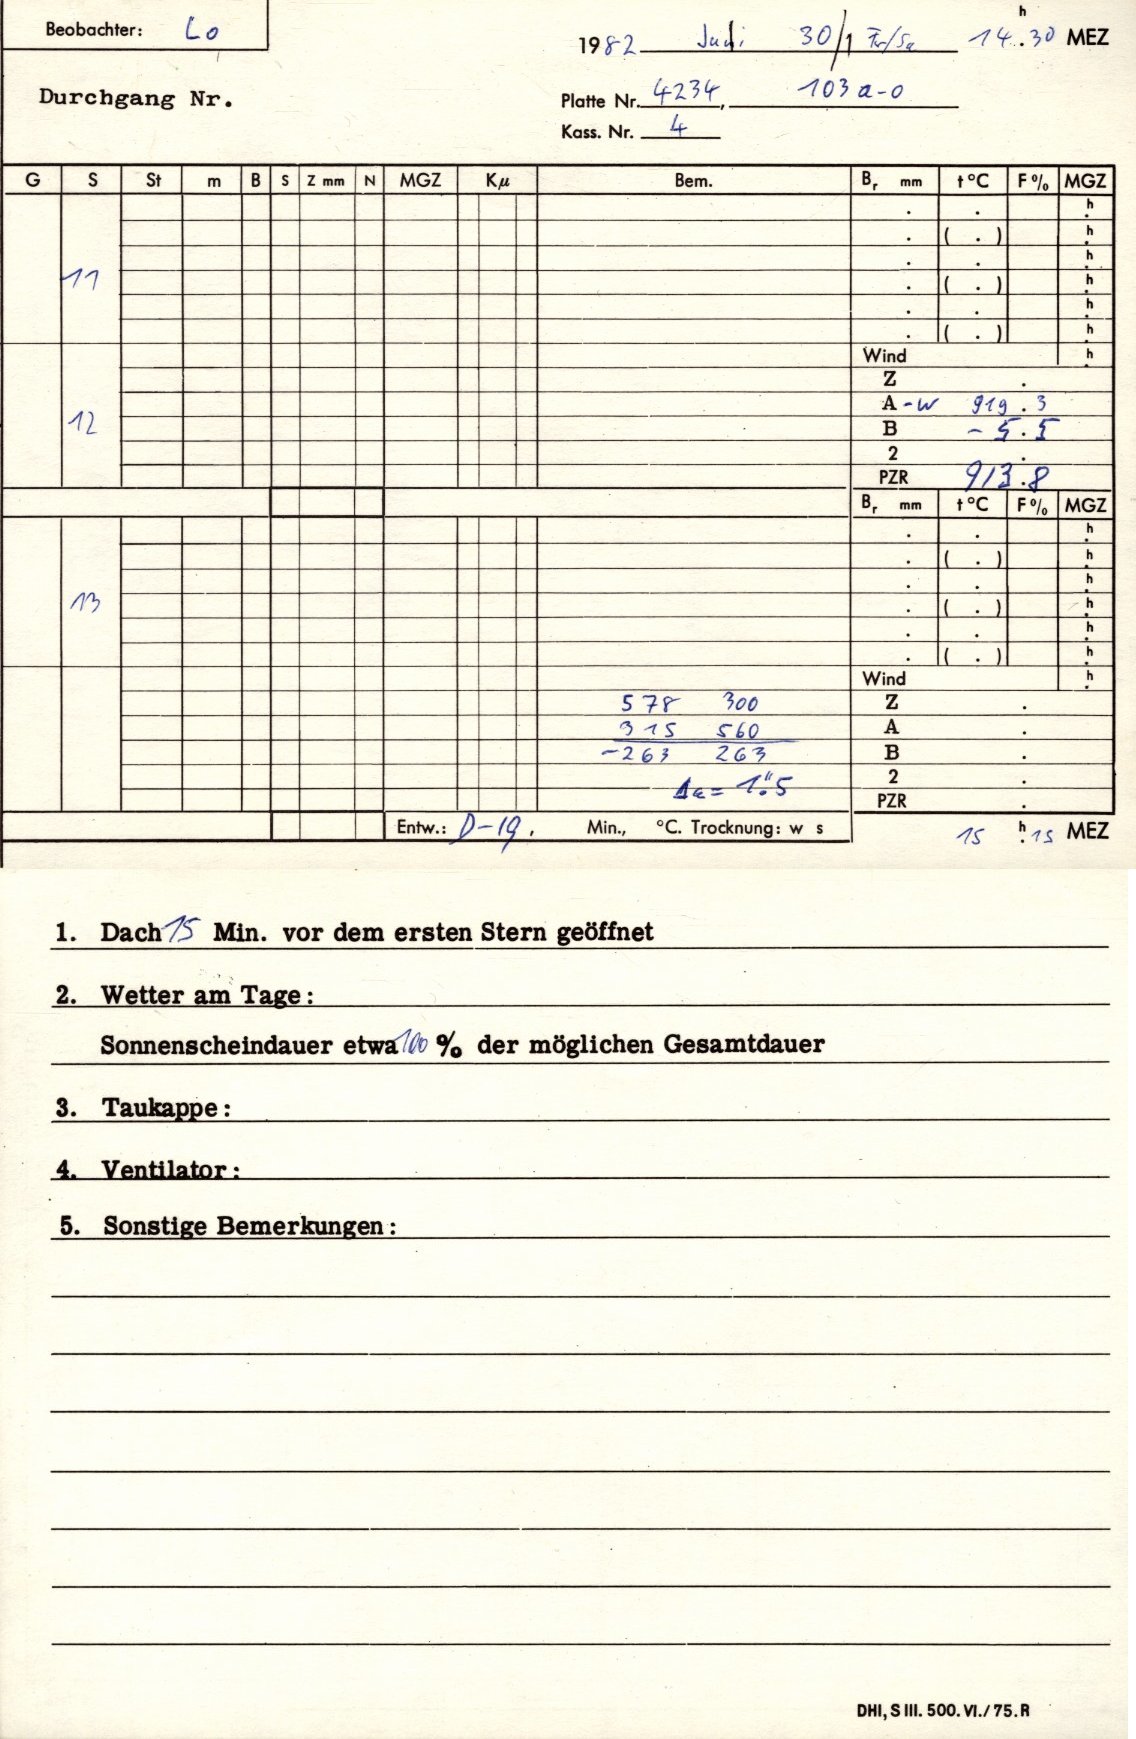 Beobachter: Lo
h
1982 Juli 30/1 Fr/Sa 14.30 MEZ
Durchgang Nr.
Platte Nr. 4234, 103a-O
Kass. Nr. 4
G S St m B S Z mm N MGZ Kµ Bem. Br mm t °C F % MGZ
. . h
. ( . ) h
. . h
11 . ( . ) h
. . h
. ( . ) h
Wind h
Z .
A -W 919.3
12 B -5.5
2 .
PZR 913.8
Br mm t °C F % MGZ
. . h
. ( . ) h
. . h
13 . ( . ) h
. . h
. ( . ) h
Wind h
578 300 Z .
315 560 A .
-263 263 B .
Δα = 1".5 2 .
PZR .
Entw.: D-19, Min., °C. Trocknung: w s 15 h.15 MEZ
1. Dach 15 Min. vor dem ersten Stern geöffnet
2. Wetter am Tage:
Sonnenscheindauer etwa 100 % der möglichen Gesamtdauer
3. Taukappe:
4. Ventilator:
5. Sonstige Bemerkungen:
DHI, S III. 500. VI./75. R